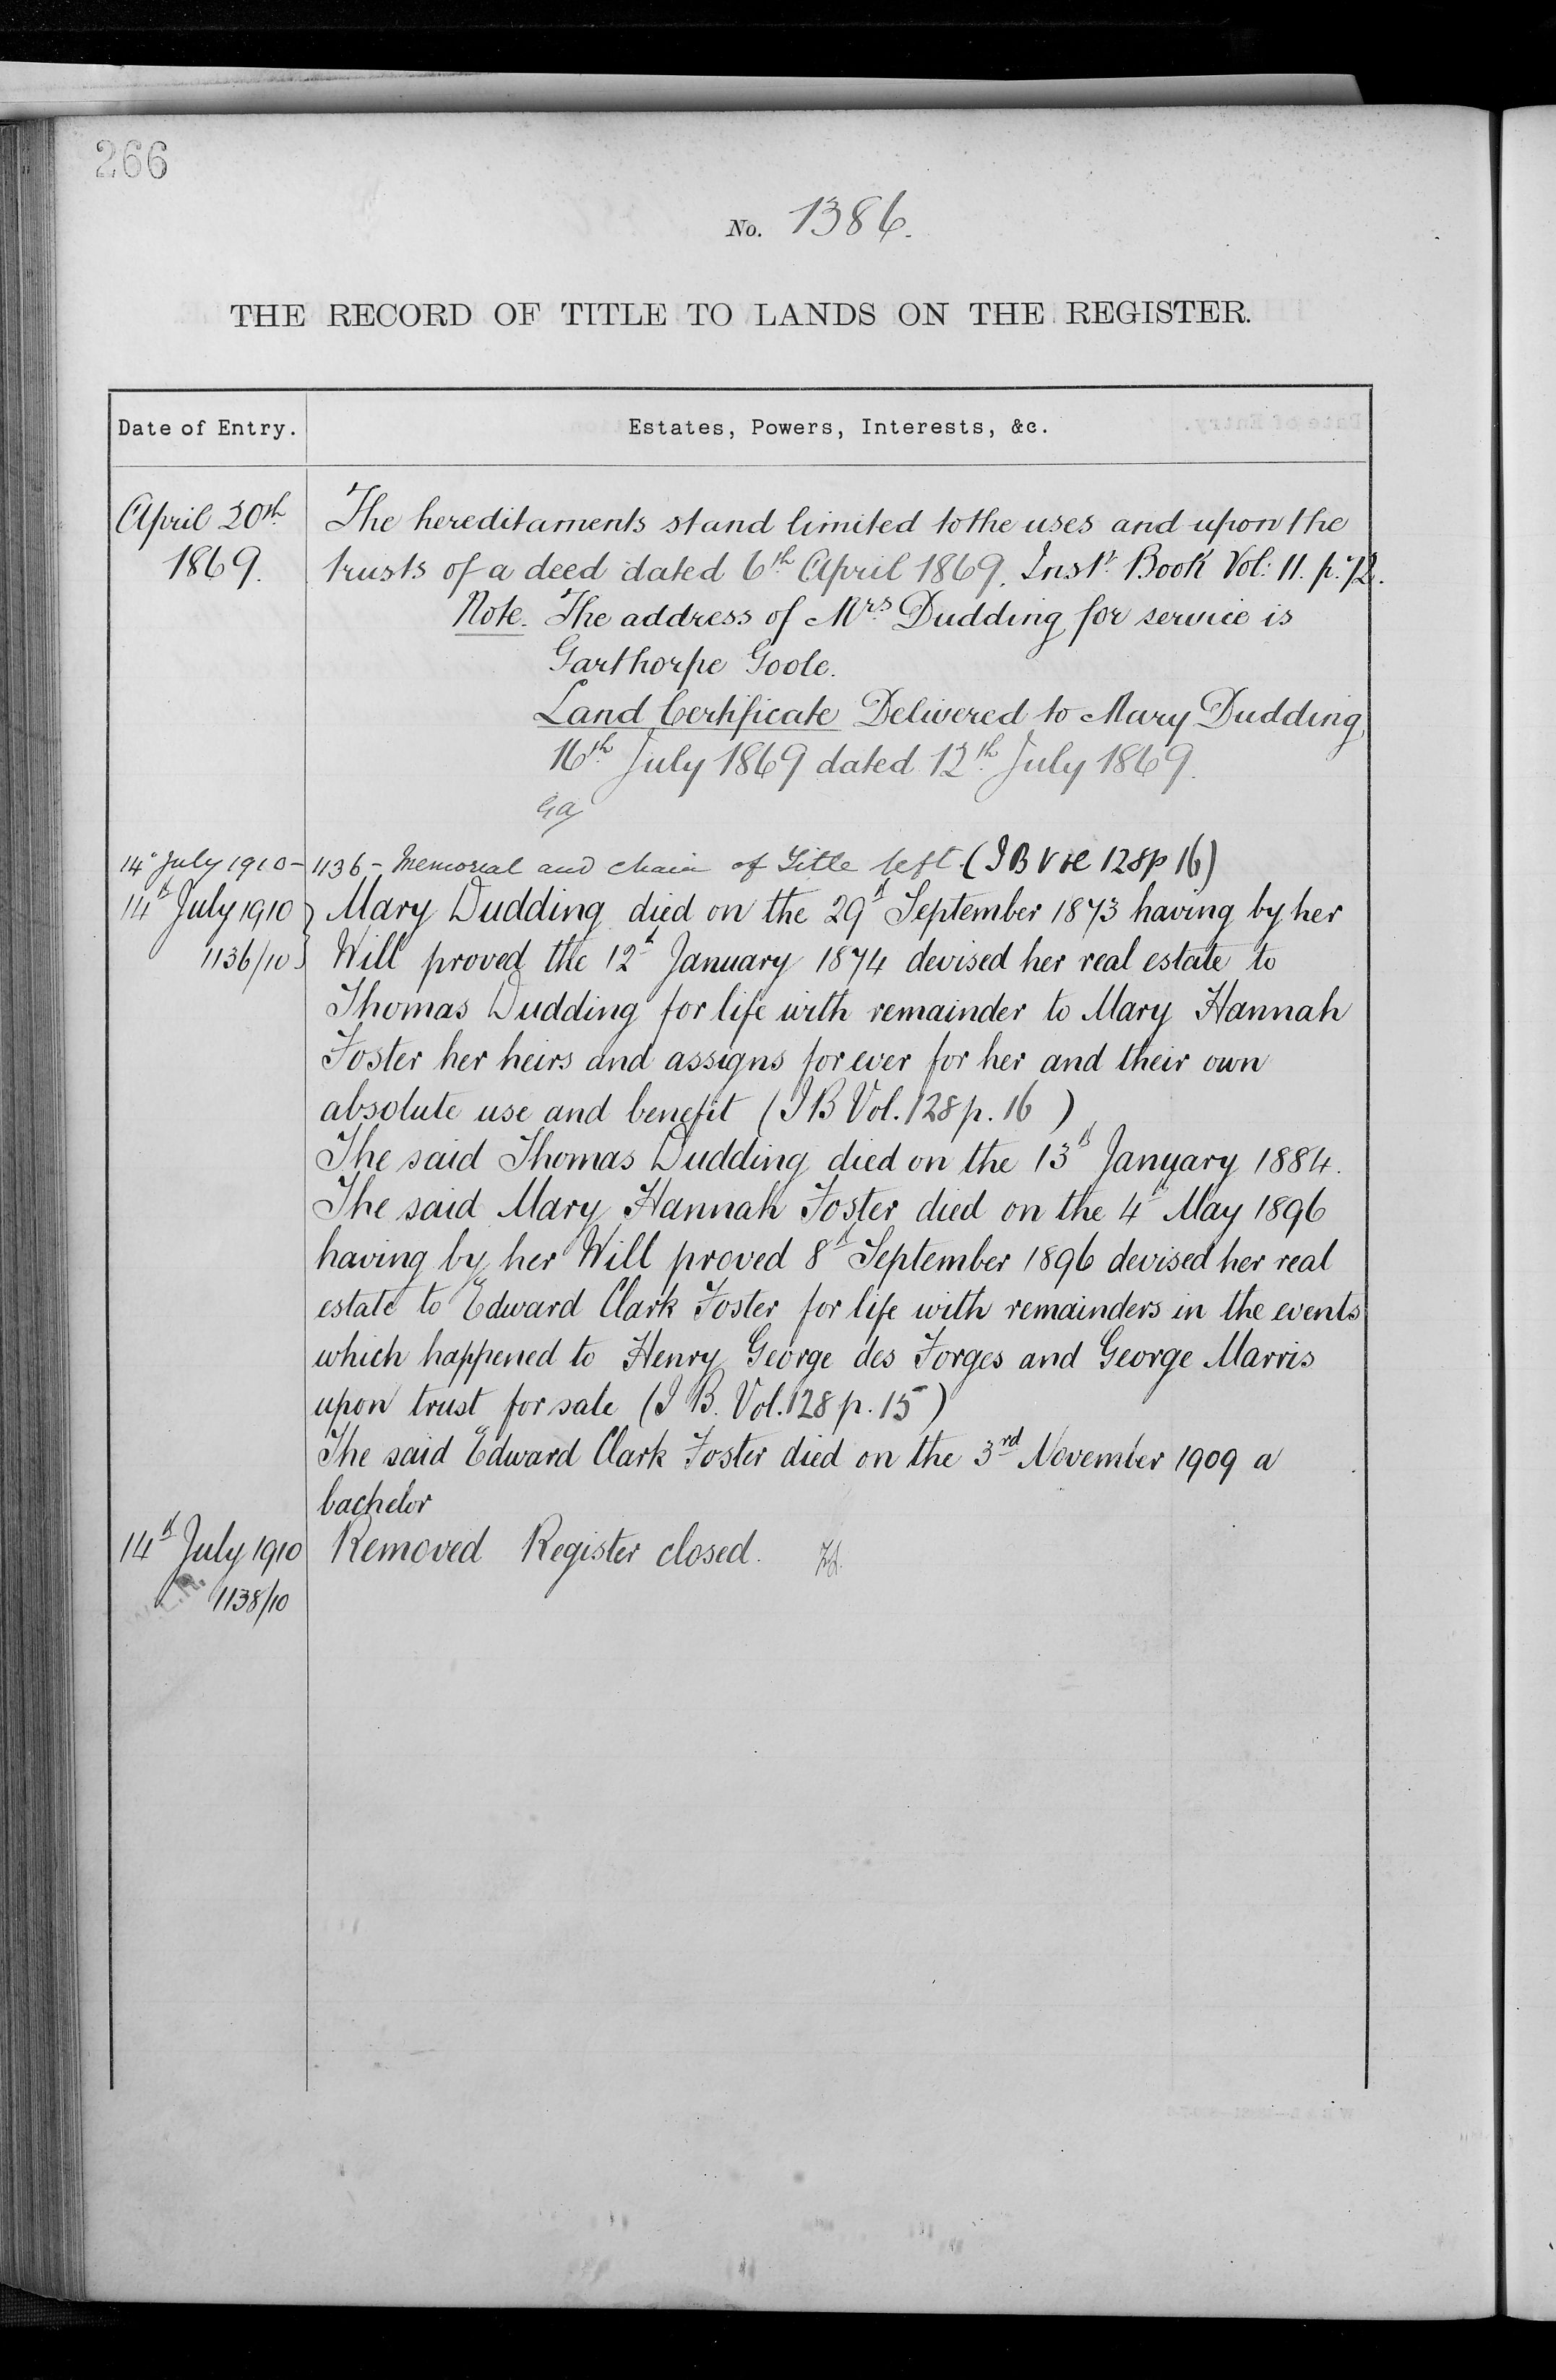 266
No. 1386.
THE RECORD OF TITLE TO LANDS ON THE REGISTER.
Date of Entry. Estates, Powers, Interests, &c.
April 20th. The hereditaments stand limited to the uses and upon the
1869. trusts of a deed dated 6th April 1869. Inst. Book Vol: 11. p. 72.
Note. The address of Mrs. Dudding for service is
Garthorpe Goole.
Land Certificate Delivered to Mary Dudding
16th July 1869 dated 12th July 1869.
14 July 1910 - 1136 - Memorial and chain of Title left. (I B Vol 128 p 16)
14th July 1910 } Mary Dudding died on the 29th September 1873 having by her
1136/10 } Will proved the 12th January 1874 devised her real estate to
Thomas Dudding for life with remainder to Mary Hannah
Foster her heirs and assigns for ever for her and their own
absolute use and benefit (I B Vol. 128 p. 16 )
The said Thomas Dudding died on the 13th January 1884.
The said Mary Hannah Foster died on the 4th May 1896
having by her Will proved 8th September 1896 devised her real
estate to Edward Clark Foster for life with remainders in the events
which happened to Henry George des Forges and George Marris
upon trust for sale (I B. Vol. 128 p. 15 )
The said Edward Clark Foster died on the 3rd November 1909 a
bachelor
14th July 1910 Removed Register closed.
1138/10